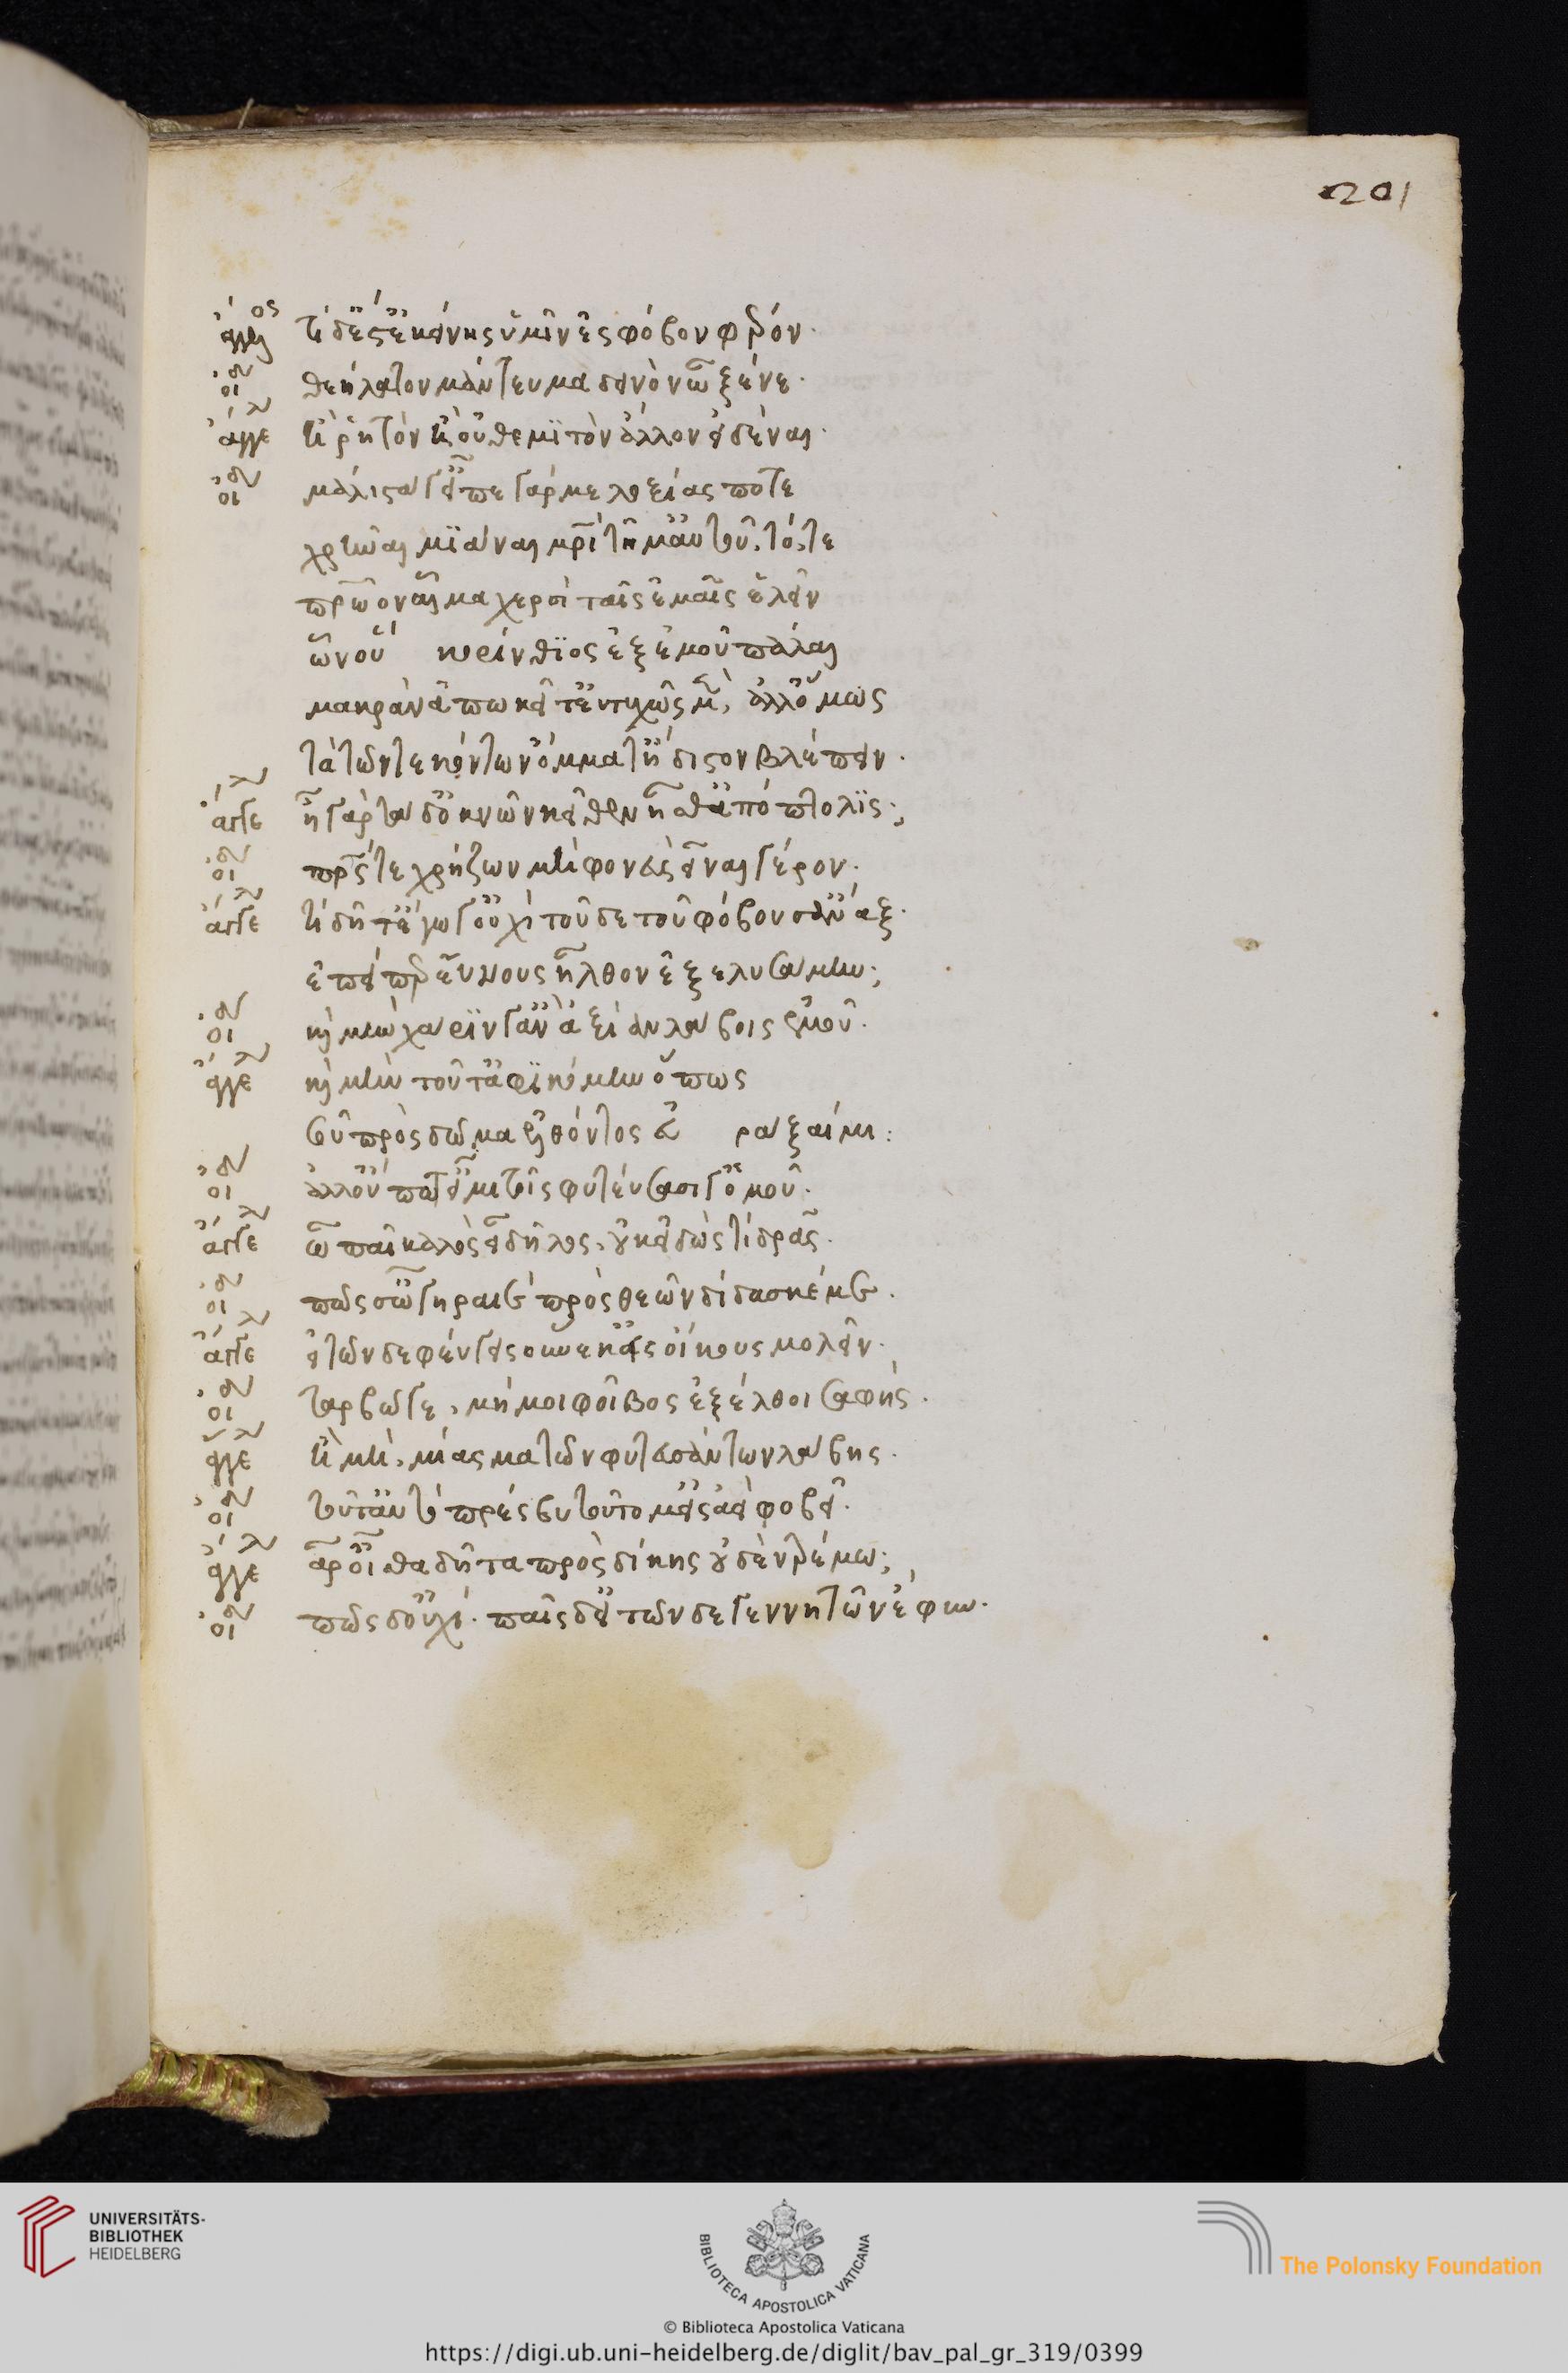 201
ἄγγελος τί δ' ἔστ' ἐκείνης ὑμῖν ἐς φόβον φέρον.
οἰδ θεήλατον μάντευμα δεινὸν ὦ ξένε.
ἄγγελ ἢ ῥητὸν ἢ οὐ θεμϊτὸν ἄλλον εἰδέναι.
οἰδ μάλιστα γ' εἶπε γάρ με λοξίας ποτε
χρῆναι μϊγῆναι μητρὶ τῆ μαυτοῦ, τό τε
πατρῶον αἷμα χερσὶ ταῖς ἐμαῖς ἑλεῖν
ὧν οὕ κορίνθϊος ἐξ ἐμοῦ πάλαι
μακρὰν ἀπωκεῖτ' εὐτυχῶς μὲν, ἀλλ' ὅμως
τὰ τῶν τεκόντων ὄμματ' ἥδιστον βλέπειν.
ἄγγελ ἦ γὰρ τάδ' ὀκνῶν κεῖθεν ἦσθ' ἀπόπτολϊς;
οἰδ πατρός τε χρήζων μὴ φονεὺς εἶναι γέρον.
ἄγγελ τί δῆτ' ἐγώ γ' οὐχὶ τοῦδε τοῦ φόβου σ' ἄναξ.
ἐπείπερ εὔνους ἦλθον ἐξελυσάμην;
οἰδ καὶ μὴν χάρϊν γ' ἂν ἀξίαν λάβοις ἐμοῦ.
ἄγγελ καὶ μὴν τοῦτ' ἀφϊκόμην ὅπως
σοῦ πρὸς δῶμα ἐλθόντος εὖ ραξαίμι:
οἰδ ἀλλ' οὔποτ' εἶμι τοῖς φυτεύσασι γ' ὁμοῦ.
ἄγγελ ὦ παῖ καλῶς εἶ δῆλος, οὐκ εἰδὼς τί δρᾶς.
οἰδ πῶς ὦ γηραιέ πρὸς θεῶν δίδασκέ με.
ἄγγελ εἰ τῶνδε φεύγεις οὕνεκ' εἰς οἴκους μολεῖν.
οἰδ ταρβῶ γε, μή μοι φοῖβος ἐξέλθοι σαφής.
ἄγγελ ἢ μὴ, μίασμα τῶν φυτευσάντων λάβης.
οἰδ τοῦτ' αὐτό πρέσβυ τοῦτο μ' εἰσαεὶ φοβεῖ.
ἄγγελ ἆρ' οἶσθα δῆτα πρὸς δίκης οὐδὲν τρέμων;
οἰδ πῶς δ' οὐχί. παῖς δ' εἰ τῶνδε γεννητῶν ἔφυν.
UNIVERSITÄTS-
BIBLIOTHEK
HEIDELBERG
BIBLIOTECA APOSTOLICA VATICANA
The Polonsky Foundation
© Biblioteca Apostolica Vaticana
https://digi.ub.uni-heidelberg.de/diglit/bav_pal_gr_319/0399